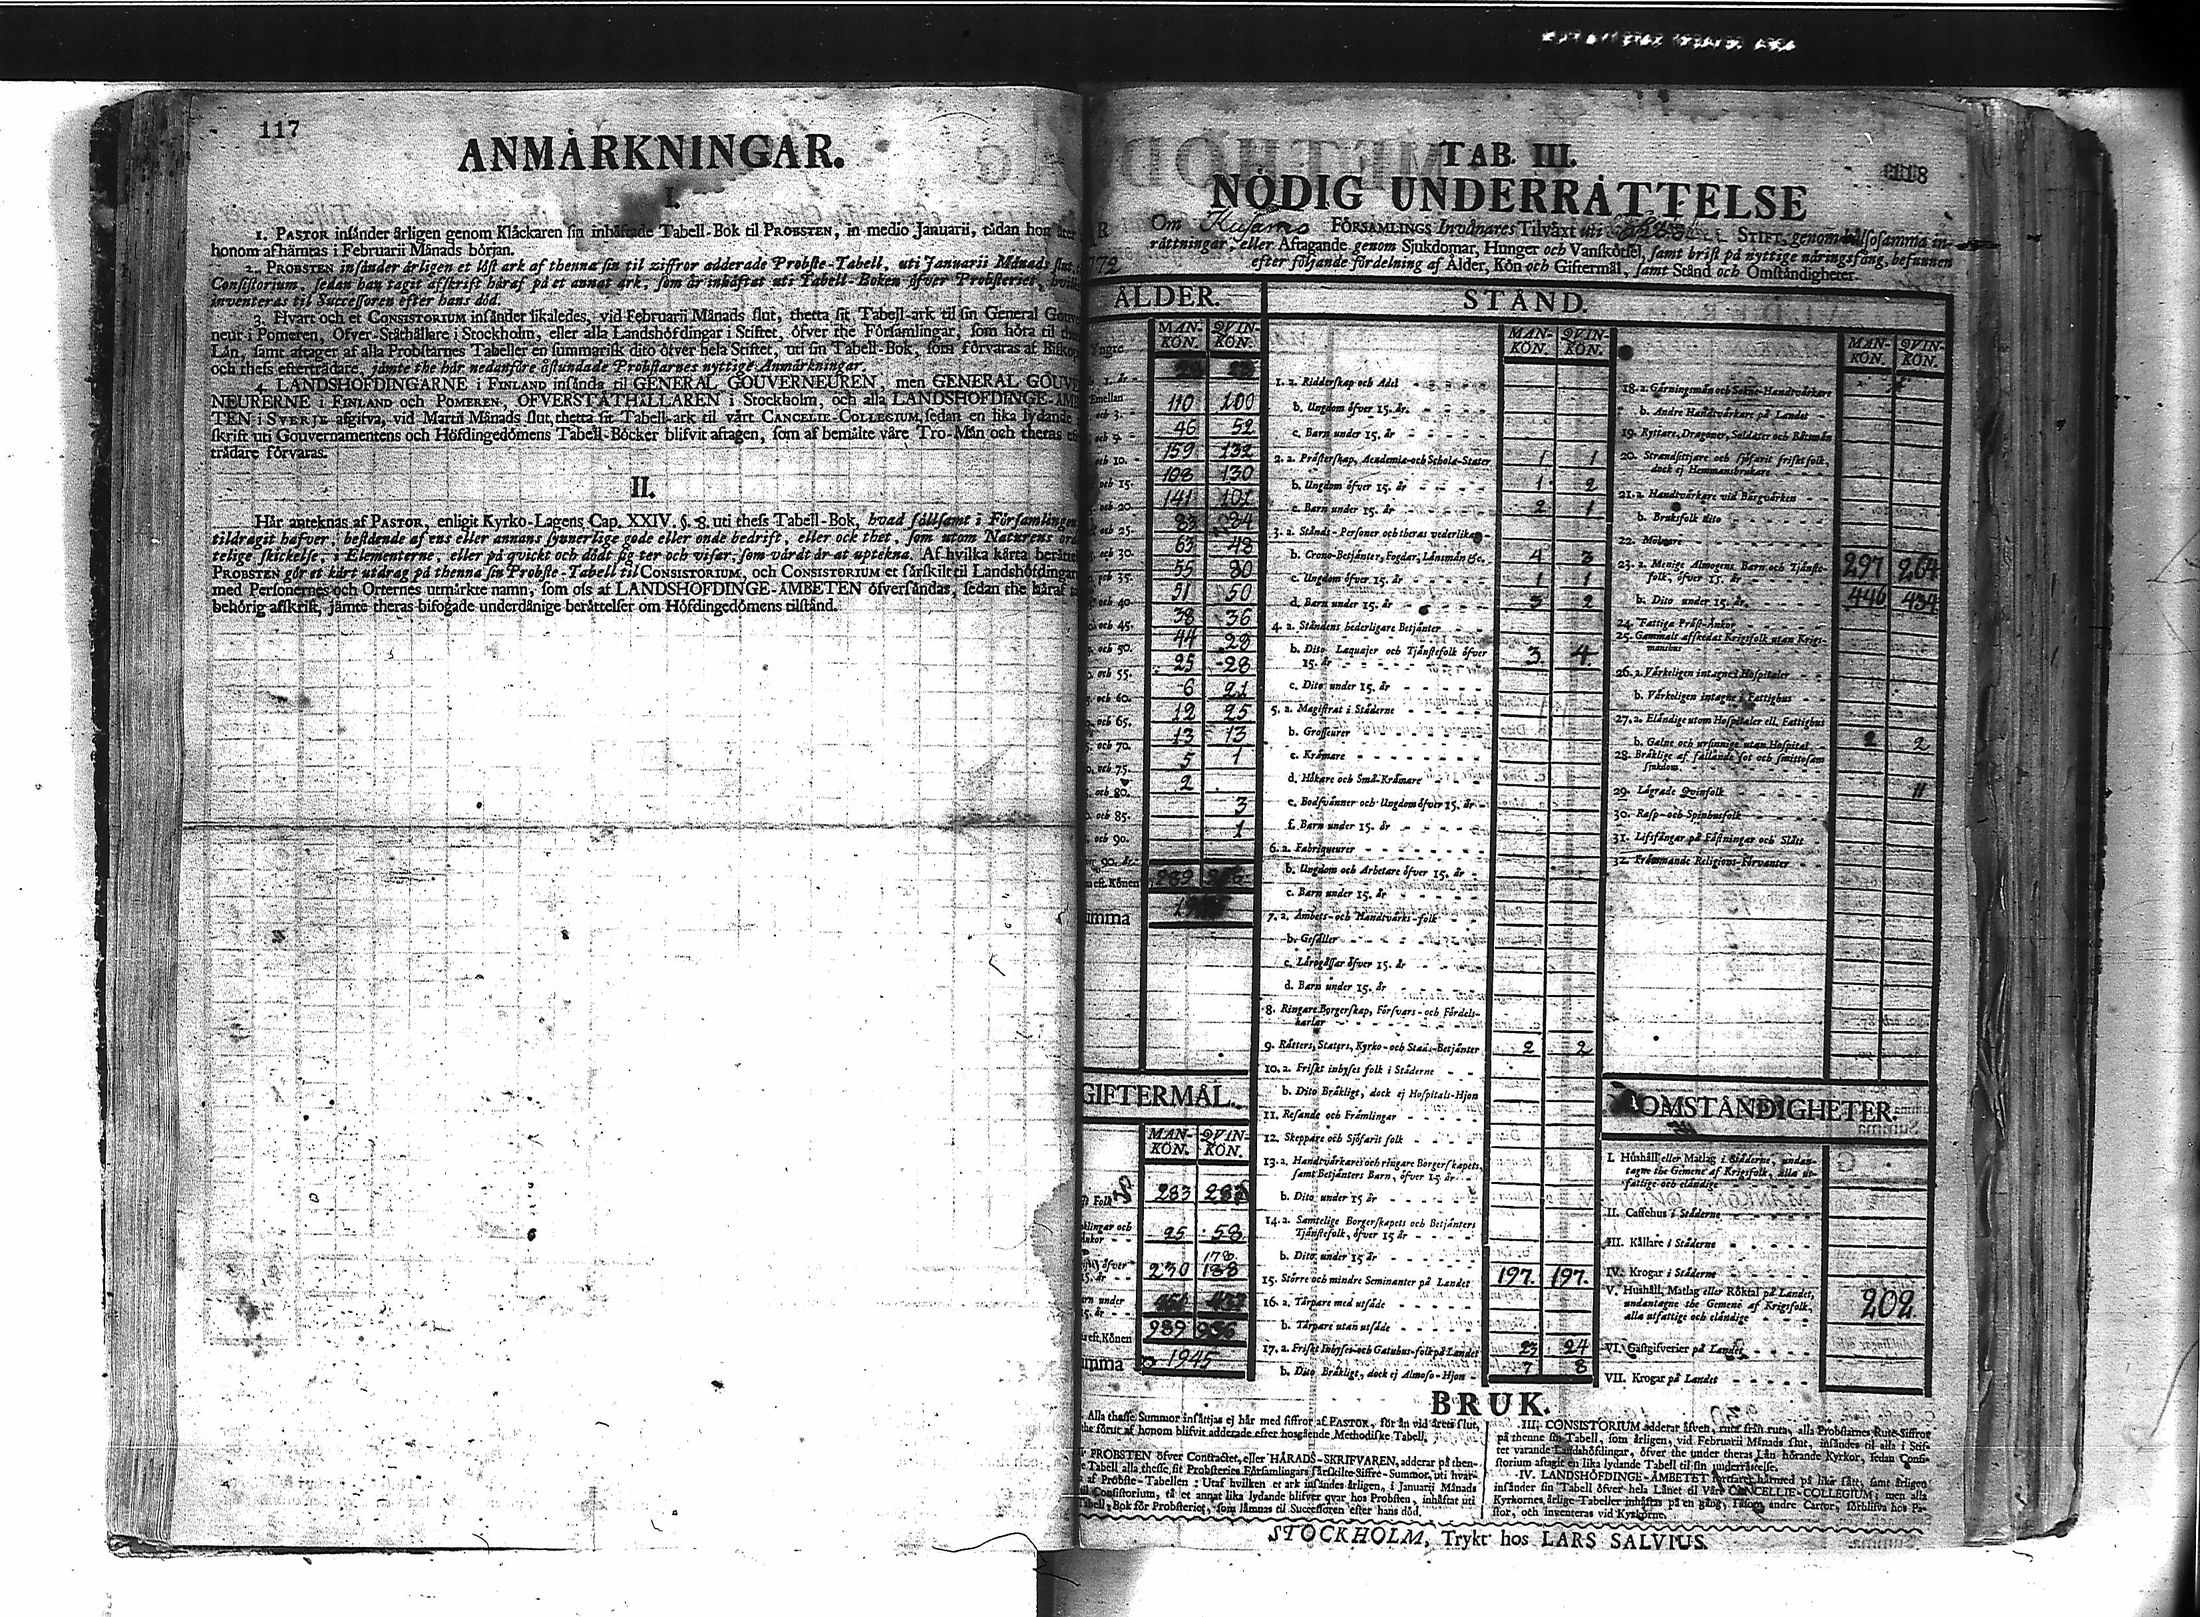 117
ANMÄRKNINGAR.
I.
1. PASTOR insänder årligen genom Klåckaren sin inhäftade Tabell-Bok til PROBSTEN, in medio Januarii, tådan hon åter
honom afhämtas i Februarii Månads början.
2. PROBSTEN insänder årligen et löst ark af thenna sin til ziffror adderade Probste-Tabell, uti Januarii Månads slut, t
Consistorium, sedan han tagit afskrift häraf på et annat ark, som är inhäftat uti Tabell-Boken öfver Probsteriet, hvilk
inventeras til Successoren efter hans död.
3. Hvart och et CONSISTORIUM insänder likaledes, vid Februarii Månads slut, thetta sit Tabell-ark til sin General Gouve
neur i Pomeren, Öfver-Ståthållare i Stockholm, eller alla Landshöfdingar i Stiftet, öfver the Församlingar, som höra til
Län, samt aftager af alla Probstarnes Tabeller en summarisk dito öfver hela Stiftet, uti sin Tabell-Bok, som förvaras af Biskop
och thess efterträdare, jämte the här nedanföre åstundade Probstarnes nyttige Anmärkningar.
4. LANDSHÖFDINGARNE i FINLAND insända til GENERAL GOUVERNEUREN, men GENERAL GOUV
NEURERNE i FINLAND och POMEREN, ÖFVERSTÅTHÅLLAREN i Stockholm, och alla LANDSHÖFDINGE-ÄMB
TEN i SVERJE afgifva, vid Martii Månads slut, thetta sit Tabell-ark til vårt CANCELIE-COLLEGIUM, sedan en lika lydande
skrift uti Gouvernamentens och Höfdingedömens Tabell-Böcker blifvit aftagen, som af bemälte våre Tro-Män och theras eft
trädare förvaras.
II.
Här anteknas af PASTOR, enligit Kyrko-Lagens Cap. XXIV. §. 8. uti thess Tabell-Bok, hvad sällsamt i Församlingen
tildragit hafver, bestående af ens eller annans synnerlige gode eller onde bedrift, eller ock thet, som utom Naturens ord
telige skickelse, i Elementerne, eller på qvickt och dödt sig ter och visar, som värdt är at uptekna. Af hvilka korta berätte
PROBSTEN gör et kort utdrag på thenna sin Probste-Tabell til CONSISTORIUM, och CONSISTORIUM et särskilt til Landshöfdingar
med Personernes och Orternes utmärkte namn, som oss af LANDSHÖFDINGE-ÄMBETEN öfversändas, sedan the häraf t
behörig afskrift, jämte theras bifogade underdånige berättelser om Höfdingedömens tilstånd.
TAB. III.
118
NÖDIG UNDERRÄTTELSE
Om Husams FÖRSAMLINGS Invånares Tilväxt uti STIFT, genom hälsosamma in-
rättningar, eller Aftagande genom Sjukdomar, Hunger och Vanskötsel, samt brist på nyttige näringsfång, befunnen
772 efter följande fördelning af Ålder, Kön och Giftermål, samt Stånd och Omständigheter.
ÅLDER.
MAN-KÖN. QVIN-KÖN.
Yngre
1. år -
Emellan
och 3. - 110 100
och 5. - 46 52
och 10. - 159 132
och 15. 108 130
och 20 141 101
och 25. 83 84
och 30. 63 48
och 35. 55 80
och 40. 51 50
och 45. 38 36
och 50. 44 28
och 55. 25 28
och 60. 6 21
och 65. 12 25
och 70. 13 13
och 75. 5 1
och 80. 2
och 85. 3
och 90. 1
90. år -
eft. Könen 989
umma
GIFTERMÅL.
MAN-KÖN. QVIN-KÖN.
Folk 283 283
klingar och
nkor 25 58
178
öfver
15. år 230 188
rn under
15. år
eft. Könen 989 956
umma 1945
STÅND.
MAN-KÖN. QVIN-KÖN.
1. a. Ridderskap och Adel
b. Ungdom öfver 15. år.
c. Barn under 15. år
2. a. Prästerskap, Academiæ-och Scholæ-Stater 1 1
b. Ungdom öfver 15. år 1 2
c. Barn under 15. år 2 1
3. a. Stånds-Personer och theras vederlikar
b. Crono-Betjänter, Fogdar, Länsmän &c. 4 3
c. Ungdom öfver 15. år 1 1
d. Barn under 15. år 3 2
4. a. Ståndens hederligare Betjänter
b. Dito Laquajer och Tjänstefolk öfver
15. år 3 4
c. Dito under 15. år
5. a. Magistrat i Städerne
b. Grosseurer
c. Krämare
d. Hökare och Små-Krämare
e. Bodsvänner och Ungdom öfver 15. år
f. Barn under 15. år
6. a. Fabriqueurer
b. Ungdom och Arbetare öfver 15. år
c. Barn under 15. år
7. a. Ämbets-och Handtvärks-folk
b. Gesäller
c. Läregåssar öfver 15. år
d. Barn under 15. år
8. Ringare Borgerskap, Försvars-och Fördels-
karlar
9. Rätters, Staters, Kyrko-och Stads-Betjänter 2 2
10. a. Friskt inhyses folk i Städerne
b. Dito Bräklige, dock ej Hospitals-Hjon
11. Resande och Främlingar
12. Skeppare och Sjöfarit folk
13. a. Handtvärkares och ringare Borgerskapets,
samt Betjänters Barn, öfver 15 år
b. Dito under 15 år
14. a. Samtelige Borgerskapets och Betjänters
Tjänstefolk, öfver 15 år
b. Dito under 15 år
15. Större och mindre Seminanter på Landet 197. 197.
16. a. Tårpare med utsäde
b. Tårpare utan utsäde
17. a. Friskt Inhyses-och Gatuhus-folk på Landet 23 24
b. Dito Bräkligt, dock ej Almoso-Hjon 7 8
MAN-KÖN. QVIN-KÖN.
18. a. Gärningsmän och Sokne-Handtvärkare
b. Andre Handtvärkare på Landet
19. Ryttare, Dragoner, Soldater och Båtsmän
20. Strandsittjare och sjöfarit friskt folk,
dock ej Hemmansbrukare
21. a. Handtvärkare vid Bärgvärken
b. Bruksfolk dito
22. Mölnare
23. a. Menige Almogens Barn och Tjänste-
folk, öfver 15. år 297 264
b. Dito under 15. år. 446 434
24. Fattiga Präst-Änkor
25. Gammalt afskedat Krigsfolk utan Krigs-
manshus
26. a. Värkeligen intagne i Hospitaler
b. Värkeligen intagne i Fattighus
27. a. Eländige utom Hospitaler ell. Fattighus
b. Galne och ursinnige utan Hospital 2 2
28. Bräklige af fallande sot och smittosam
sjukdom.
29. Lägrade Qvinfolk 11
30. Rasp-och Spinhusfolk
31. Lifsfångar på Fästningar och Slått
32. Främmande Religions-Förvanter
OMSTÄNDIGHETER.
I. Hushåll eller Matlag i Städerne, undan-
tagne the Gemene af Krigsfolk, alla ut-
fattige och eländige
II. Caffehus i Städerne
III. Källare i Städerne
IV. Krogar i Städerne
V. Hushåll, Matlag eller Röktal på Landet,
undantagne the Gemene af Krigsfolk,
alla utfattige och eländige 202
VI. Gästgifverier på Landet
VII. Krogar på Landet
BRUK.
Alla thesse Summor insättjas ej här med siffror af PASTOR, för än vid årets slut,
the förut af honom blifvit adderade efter hosgående Methodiske Tabell.
PROBSTEN öfver Contractet, eller HÄRADS-SKRIFVAREN, adderar på then-
e Tabell alla thesse, sit Probsteries Församlingars särskilte Siffre-Summor, uti hvar
af Probste-Tabellen: Utaf hvilken et ark insändes årligen, i Januarii Månads
til Consistorium, tå et annat lika lydande blifver qvar hos Probsten, inhäftat uti
Tabell-Bok för Probsteriet, som lämnas til Successoren efter hans död.
III. CONSISTORIUM adderar äfven, ruta från ruta, alla Probstarnes Rute-Siffror
på thenne sin Tabell, som årligen, vid Februarii Månads slut, insändes til alla i Stif-
tet varande Landshöfdingar, öfver the under theras Län hörande Kyrkor, sedan Consi-
storium aftagit en lika lydande Tabell til sin underrättelse.
IV. LANDSHÖFDINGE-ÄMBETET fortfarer härmed på lika sätt, samt årligen
insänder sin Tabell öfver hela Länet til Vårt CANCELLIE-COLLEGIUM; men alla
Kyrkornes årlige Tabeller inhäftas på en gång, såsom andre Cartor, förblifva hos Pa-
stor, och inventeras vid Kyrkorne.
STOCKHOLM, Trykt hos LARS SALVIUS.